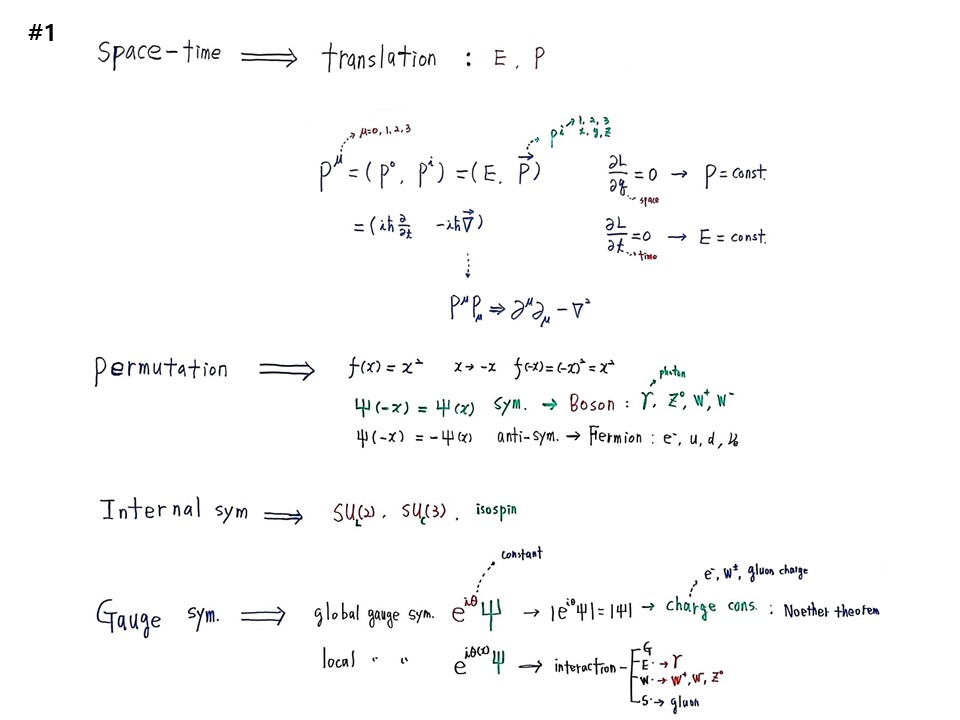 #1
Space-time ⟹ translation : E, P
μ=0, 1, 2, 3
pⁱ → 1, 2, 3
x, y, z
P^μ = (P⁰, Pⁱ) = (E, P⃗)
∂L/∂q = 0 → P = const.
space
= (iħ ∂/∂t  -iħ∇⃗)
∂L/∂t = 0 → E = const.
time
P^μ P_μ ⇒ ∂^μ ∂_μ - ∇²
Permutation ⟹ f(x) = x²  x → -x  f(-x) = (-x)² = x²
photon
Ψ(-x) = Ψ(x) sym. → Boson : γ, Z⁰, W⁺, W⁻
Ψ(-x) = -Ψ(x) anti-sym. → Fermion : e⁻, u, d, νₑ
Internal sym ⟹ SU_L(2), SU_C(3), isospin
constant
e⁻, W±, gluon charge
Gauge sym. ⟹ global gauge sym. e^{iθ}Ψ → |e^{iθ}Ψ| = |Ψ| → charge cons. ; Noether theorem
local " " e^{iθ(x)}Ψ → interaction
G
E → γ
W → W⁺, W⁻, Z⁰
S → gluon